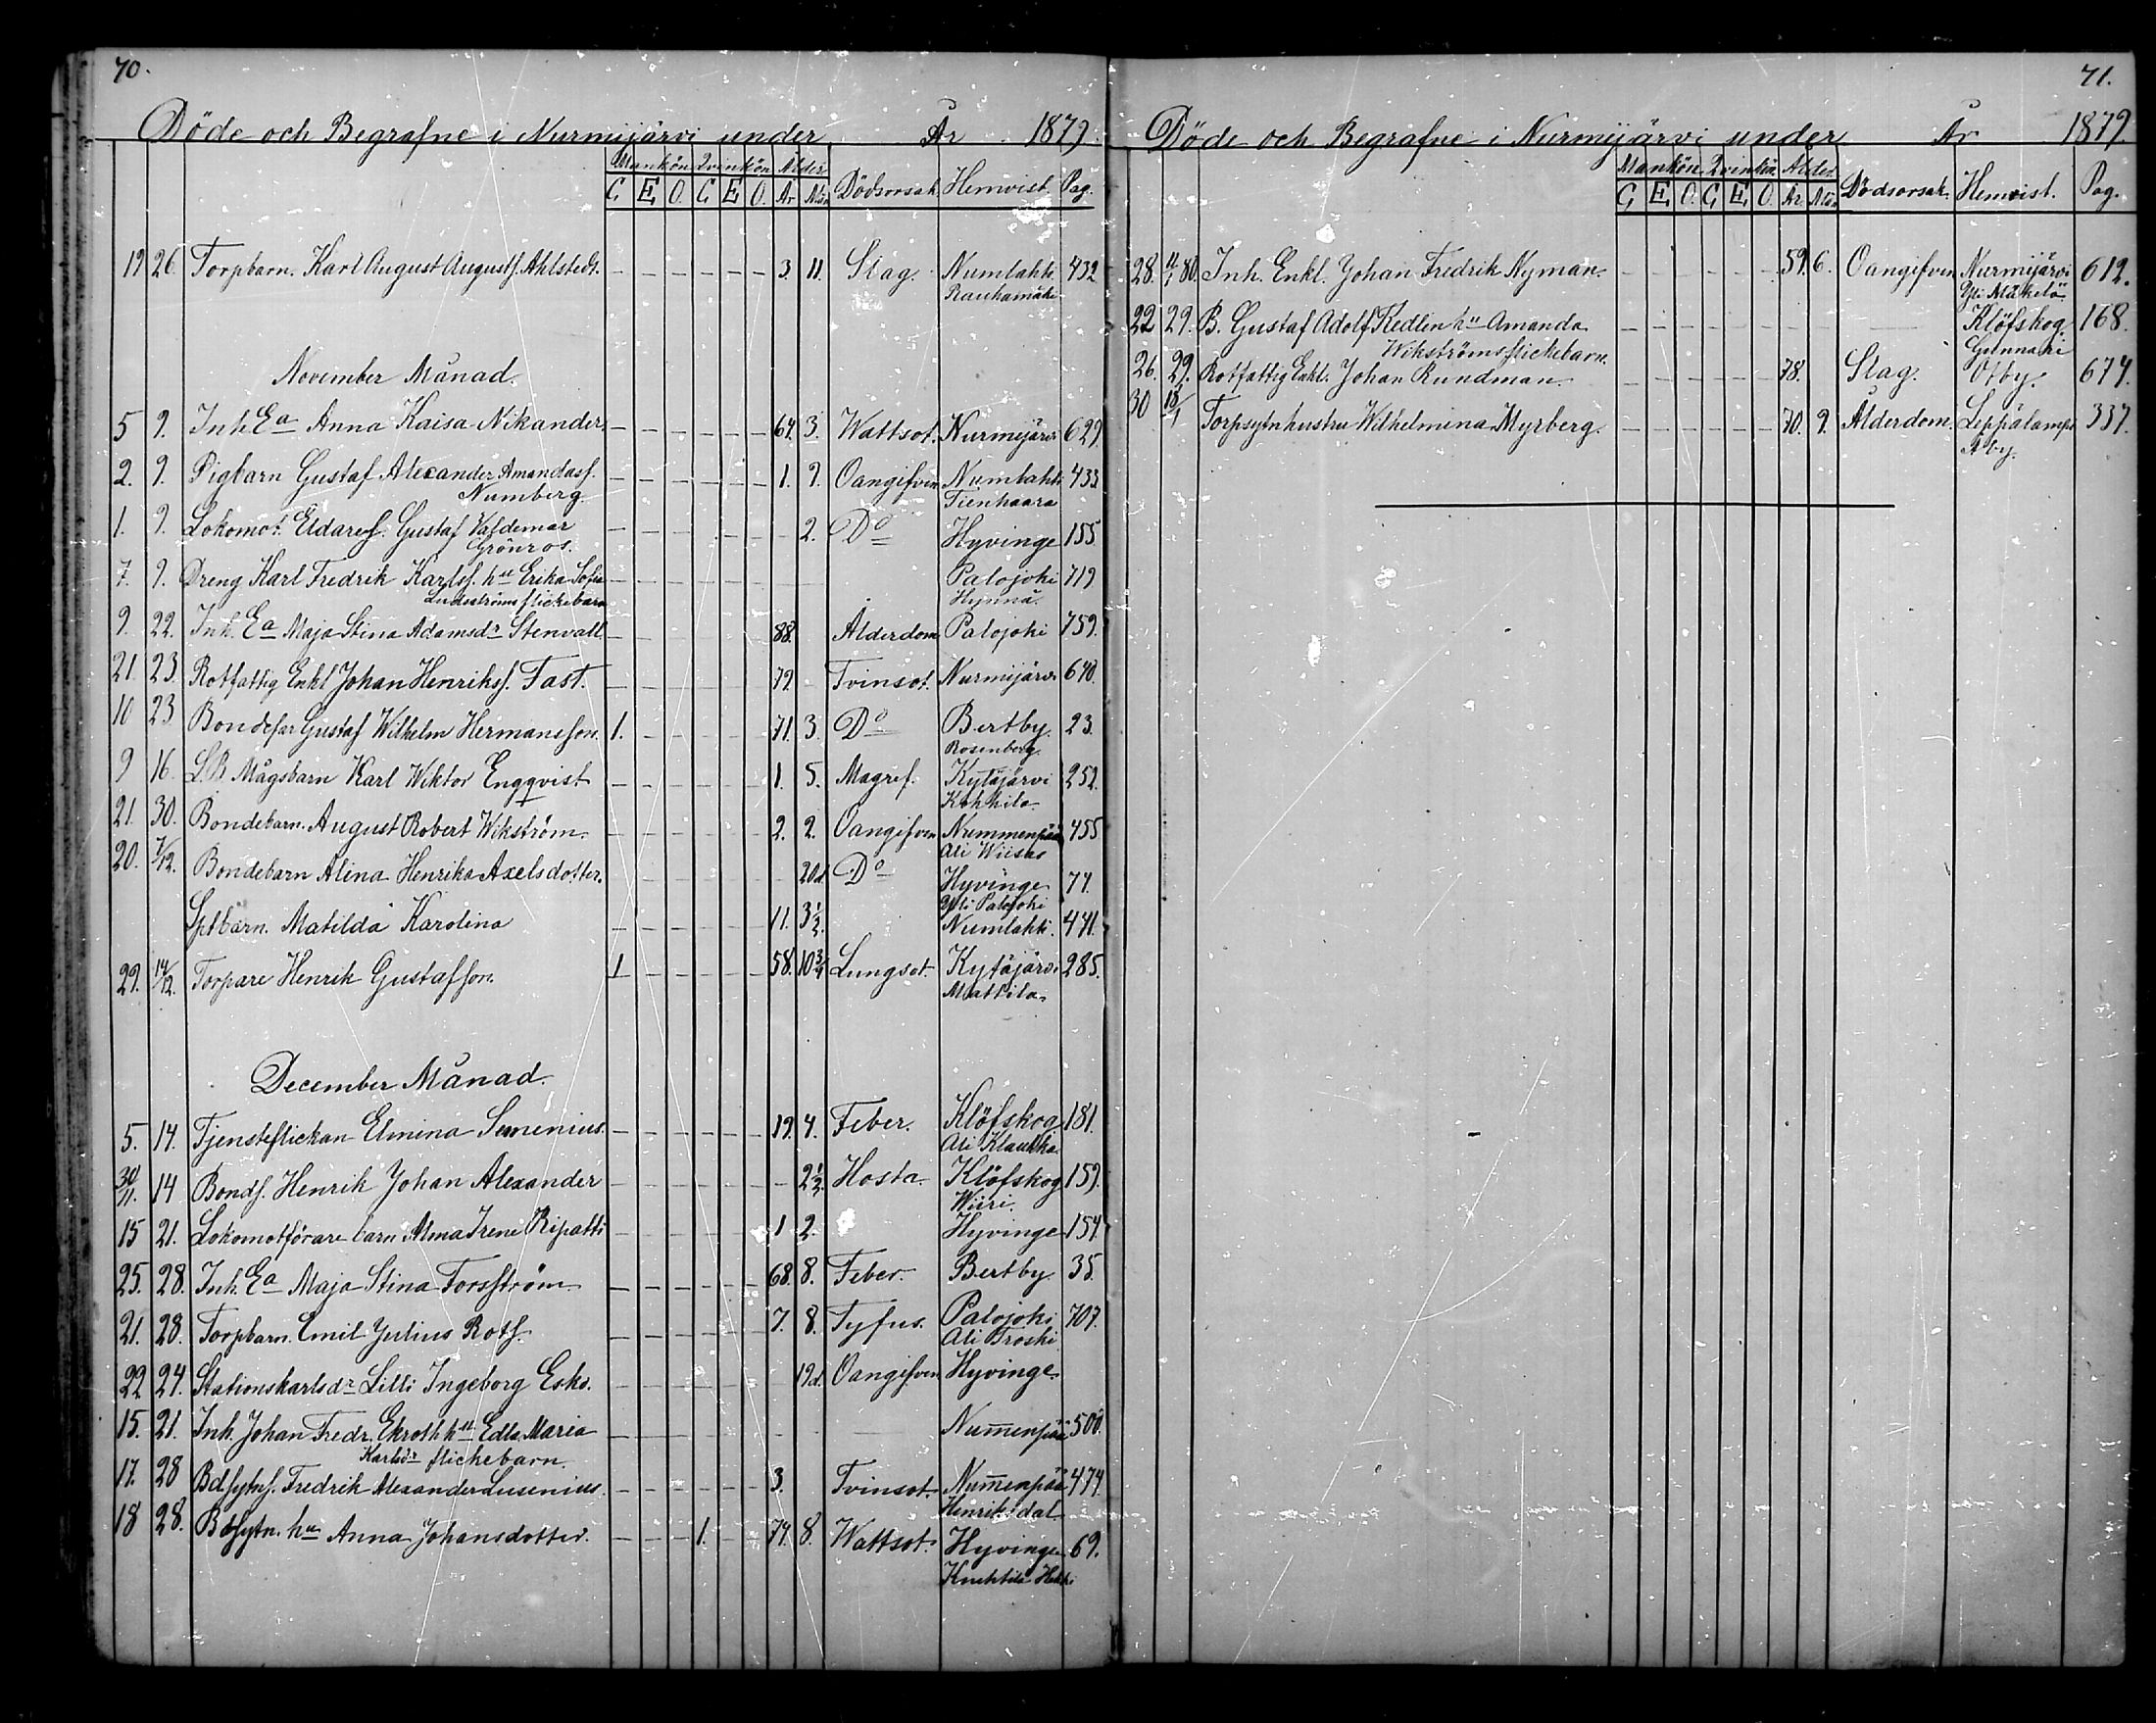 70.
Döde och Begrafne i Nurmijärvi under År 1879.
Mankön Qvinkön Ålder
G. E O. G E O. År Mån Dödsorsak Hemvist. Pag.
19 26 Torpbarn. Karl August Augustss. Ahlstedt. 3. 11. Slag. Numlahti 432
Rauhamäki
November Månad.
5 9. Inh. Ea Anna Kaisa Nikander. 64. 3. Wattsot. Nurmijärvi 629
2. 9. Pigbarn Gustaf Alexander Amandass. 1. 9. Oangifven Numlahti 433
Numberg. Tienhaara
1. 9. Lokomot. Eldaress. Gustaf Valdemar 2. Do Hyvinge 155
Grönros.
7. 9. Dreng Karl Fredrik Karlss. hu Erika Sofia Palojoki 719
Lindströms flickebarn Hynnä.
9. 22. Inh. Ea Maja Stina Adamsdr Stenvall 88. Ålderdom Palojoki 759.
21 23. Rotfattig Enkl Johan Henrikss. Fast. 79. Tvinsot. Nurmijärvi 640.
10 23 Bondefar Gustaf Wilhelm Hermansson. 1. 71. 3. Do Bertby 23.
Rosenberg.
9 16. L.B Mågsbarn Karl Wiktor Engqvist 1. 5. Magref. Kytäjärvi 252.
Kohkila
21. 30. Bondebarn. August Robert Wikström. 2. 2. Oangifven Nummenpää 455
Ali Wiisas
20. 7/12. Bondebarn Alina Henrika Axelsdotter. 20d Do Hyvinge 74.
Yli Palojoki
Sptbarn. Matilda Karolina 11. 3½. Numlahti. 441.
29. 14/12. Torpare Henrik Gustafsson. 1 58. 10¾ Lungsot. Kytäjärvi 285.
Mattila
December Månad.
5. 14. Tjensteflickan Elmina Sumenius. 19. 4. Feber. Klöfskog 181.
Ali Klaukka
30/11. 14 Bonds. Henrik Johan Alexander 2½. Hosta Klöfskog 159.
Wiiri.
15 21. Lokomotförare barn Alma Irene Ripatti 1 2. Hyvinge 154
25. 28. Inh. Ea Maja Stina Forsström 68. 8. Feber. Bertby 35.
21. 28. Torpbarn. Emil Julius Roth. 7. 8. Tyfus. Palojoki 707.
Ali Troski
22 24. Stationskarlsdr Lilli Ingeborg Esko. 19d. Oangifven Hyvinge
15. 21. Inh. Johan Fredr. Ekroth hu Edla Maria Num̅enpää 500.
Karlsdr flickebarn.
17. 28 Bdsytns. Fredrik Alexander Lusenius. 3. Tvinsot. Num̅enpää 474
Henriksdal
18 28. Bdsytn. hu Anna Johansdotter. 1. 74. 8. Wattsot. Hyvinge 69.
Knehtilä Heikki
71.
Döde och Begrafne i Nurmijärvi under År 1879.
Mankön. Qvinkön. Ålder.
G E O. G E O. År Mån Dödsorsak. Hemvist. Pag.
28. 11/1 80. Inh. Enkl. Johan Fredrik Nyman. 59. 6. Oangifven Nurmijärvi 612.
Yli Mäkelä
22 29. B. Gustaf Adolf Kedlin hu Amanda Klöfskog. 168.
Wikströms flickebarn. Gunnari
26. 29. Rotfattig Enkl. Johan Rundman. 78. Slag. Otby. 674.
30 18/1 Torpsytnhustru Wilhelmina Myrberg. 70. 9. Ålderdom. Leppälampi 337.
Åby.